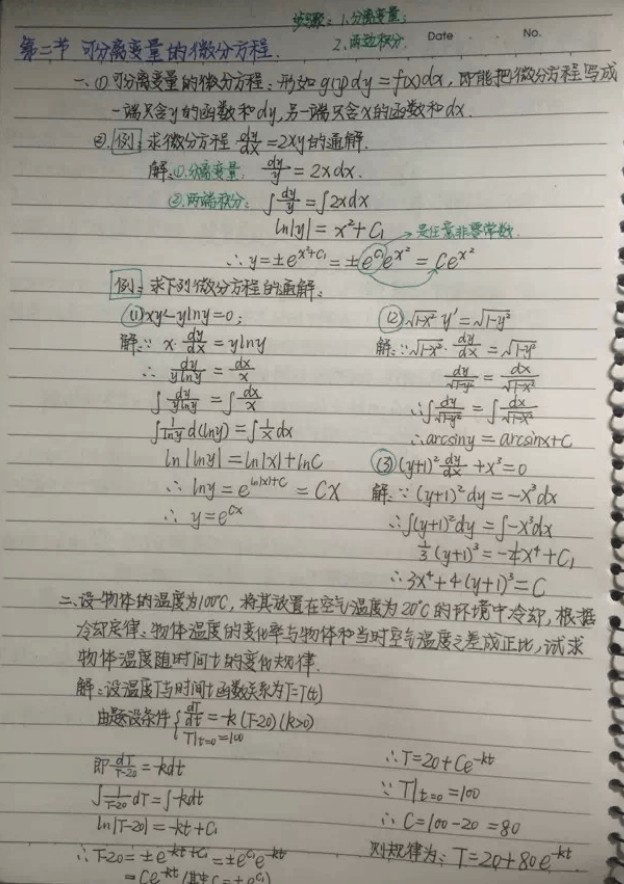 步骤：1.分离变量；
2.两边积分.
Date No.
第二节 可分离变量的微分方程.
一、①可分离变量的微分方程：形如g(y)dy=f(x)dx，即能把微分方程写成
一端只含y的函数和dy，另一端只含x的函数和dx.
②.例：求微分方程 dy/dx=2xy的通解.
解：①.分离变量： dy/y=2xdx.
②.两端积分： ∫dy/y=∫2xdx
ln|y|=x²+C₁
是任意非零常数.
∴y=±e^(x²+C₁)=±e^(C₁)e^(x²)=Ce^(x²)
例：求下列微分方程的通解：
(1)xy'-ylny=0；
解：∵ x·dy/dx=ylny
∴ dy/(ylny)=dx/x
∫dy/(ylny)=∫dx/x
∫1/lny d(lny)=∫1/x dx
ln|lny|=ln|x|+lnC
∴ lny=e^(ln|x|+C)=CX
∴ y=e^(Cx)
(2)√(1-x²) y'=√(1-y²)
解：∵√(1-x²)·dy/dx=√(1-y²)
dy/√(1-y²)=dx/√(1-x²)
∴∫dy/√(1-y²)=∫dx/√(1-x²)
∴arcsiny=arcsinx+C
(3)(y+1)²dy/dx+x³=0
解：∵(y+1)²dy=-x³dx
∴∫(y+1)²dy=∫-x³dx
1/3(y+1)³=-1/4x⁴+C₁
∴3x⁴+4(y+1)³=C
二、设一物体的温度为100℃，将其放置在空气温度为20℃的环境中冷却，根据
冷却定律：物体温度的变化率与物体和当时空气温度之差成正比，试求
物体温度随时间t的变化规律.
解：设温度T与时间t函数关系为T=T(t)
由题设条件{dT/dt=-k(T-20)(k>0)
T|t=0=100
即dT/(T-20)=-kdt
∫1/(T-20)dT=∫-kdt
ln|T-20|=-kt+C₁
∴T-20=±e^(-kt+C₁)=±e^(C₁)e^(-kt)
=Ce^(-kt)(其中C=±e^(C₁))
∴T=20+Ce^(-kt)
∵T|t=0=100
∴C=100-20=80
则规律为：T=20+80e^(-kt)